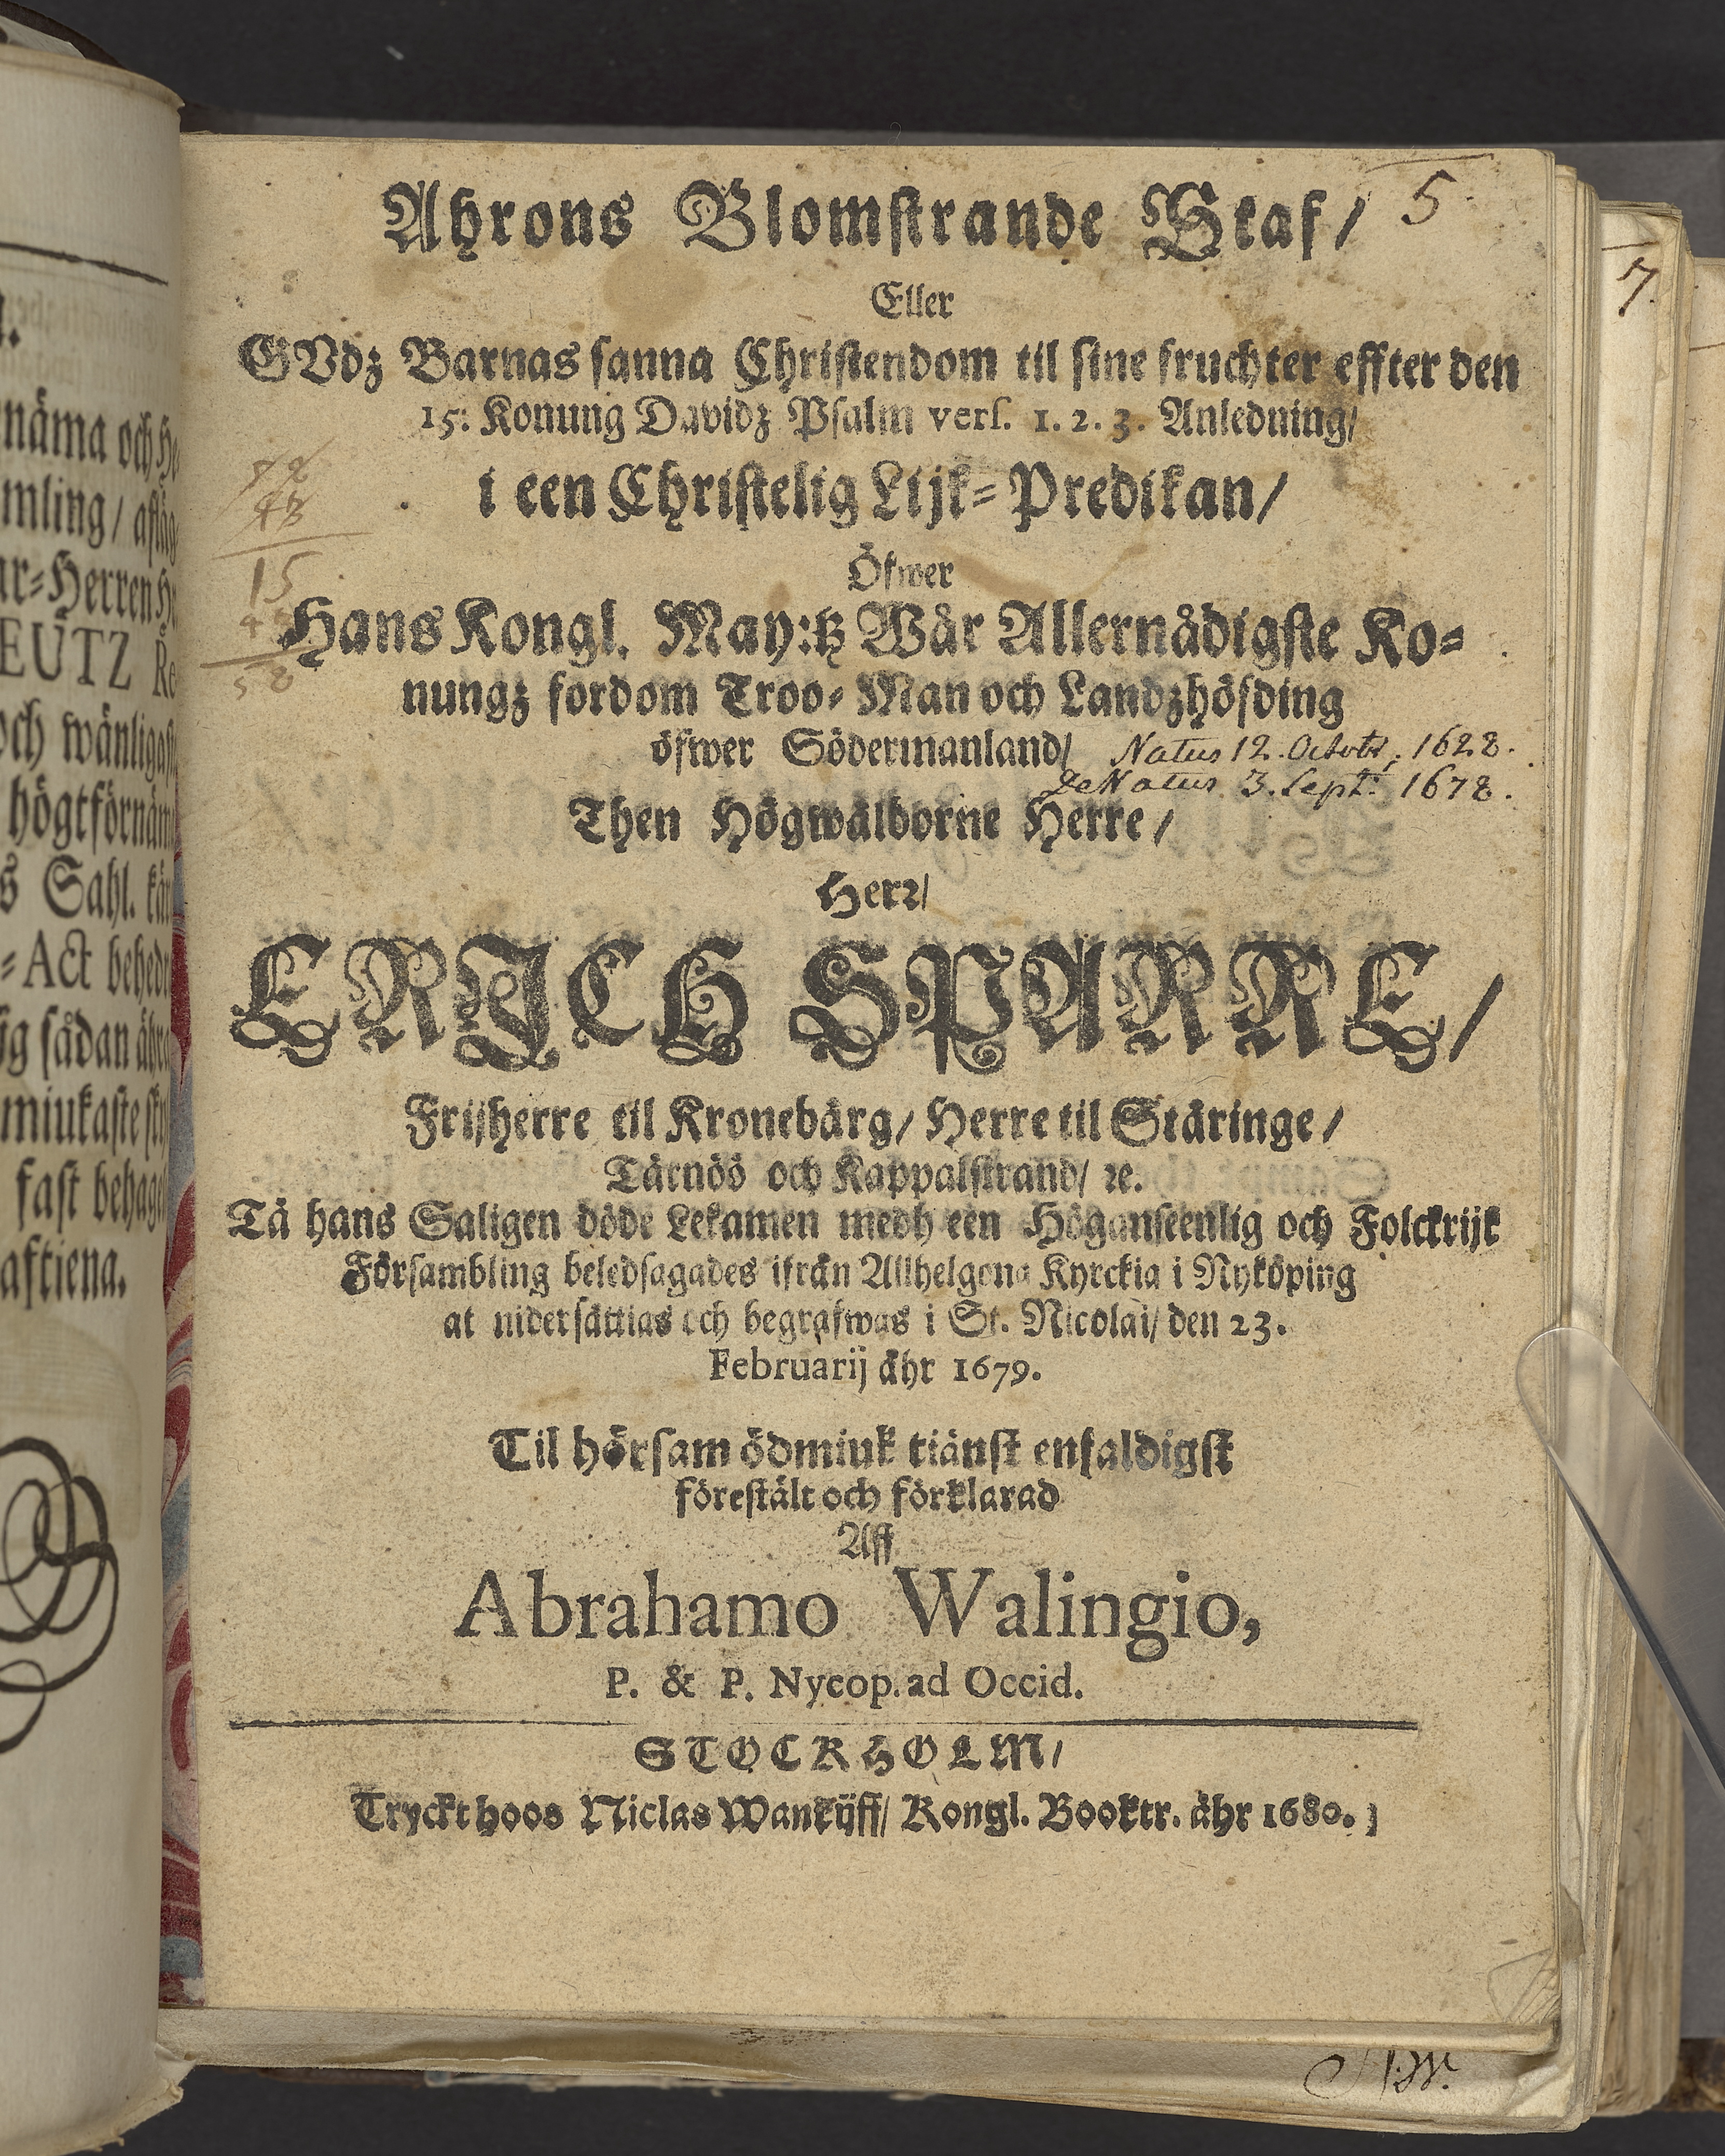 Ahrons Blomstrande Staf/ 5.
Eller
GVdz Barnas sanna Christendom til sine fruchter effter den
15: Konung Davidz Psalm vers. 1. 2. 3. Anledning/
i een Christelig Lijk-Predikan/
Öfwer
Hans Kongl. May:tz Wår Allernådigste Ko-
nungz fordom Troo-Man och Landzhöfding
öfwer Södermanland/ Natus 12. Octobr; 1628.
DeNatus 3. Sept: 1678.
Then Högwälborne Herre/
Herr/
ERICH SPARRE/
Frijherre til Kronebärg/ Herre til Stäringe/
Tärnöö och Kappalstrand/ ꝛc.
Tå hans Saligen döde Lekamen medh een Höganseenlig och Folckrijk
Försambling beledsagades ifrån Allhelgona Kyrckia i Nyköping
at nidersättias och begrafwas i St. Nicolai/ den 23.
Februarij åhr 1679.
Til hörsam ödmiuk tiänst enfaldigst
förestält och förklarad
Aff
Abrahamo Walingio,
P. & P. Nycop. ad Occid.
STOCKHOLM/
Tryckt hoos Niclas Wankijff/ Kongl. Booktr. åhr 1680.
15
7.
näma och
mling/
ar-Herren
EUTZ
och wänligast
högtförnäm
s Sahl.
-Act
sådan
miukaste
fast
aftiena.